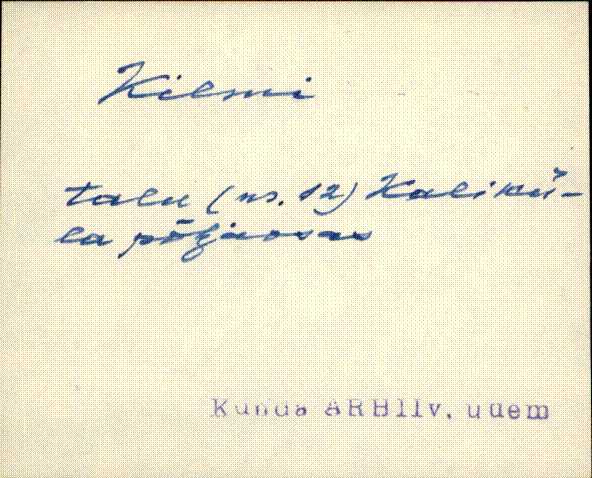 Kilmi
talu (nr. 12) Kalikü-
la põhjaosas
Kunda arhiiv, uuem